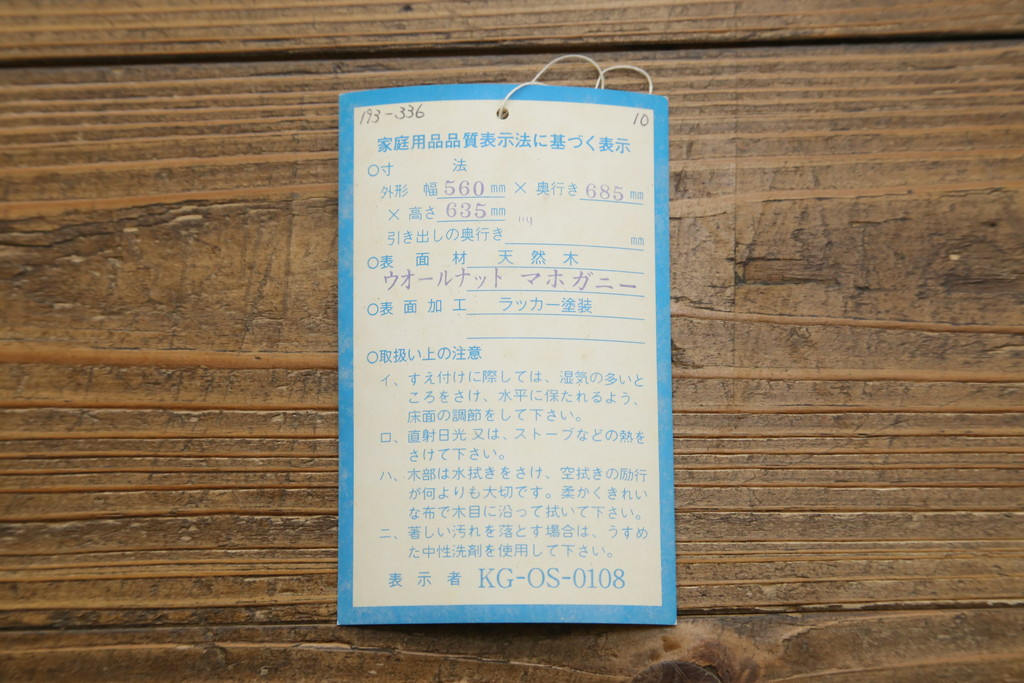 193-336 10
家庭用品品質表示法に基づく表示
○寸 法
外形 幅 560 mm × 奥行き 685 mm
× 高さ 635 mm
引き出しの奥行き mm
○表 面 材 天 然 木
ウオールナット マホガニー
○表 面 加 工 ラッカー塗装
○取扱い上の注意
イ、すえ付けに際しては、湿気の多いと
ころをさけ、水平に保たれるよう、
床面の調節をして下さい。
ロ、直射日光又は、ストーブなどの熱を
さけて下さい。
ハ、木部は水拭きをさけ、空拭きの励行
が何よりも大切です。柔かくきれい
な布で木目に沿って拭いて下さい。
ニ、著しい汚れを落とす場合は、うすめ
た中性洗剤を使用して下さい。
表 示 者 KG-OS-0108